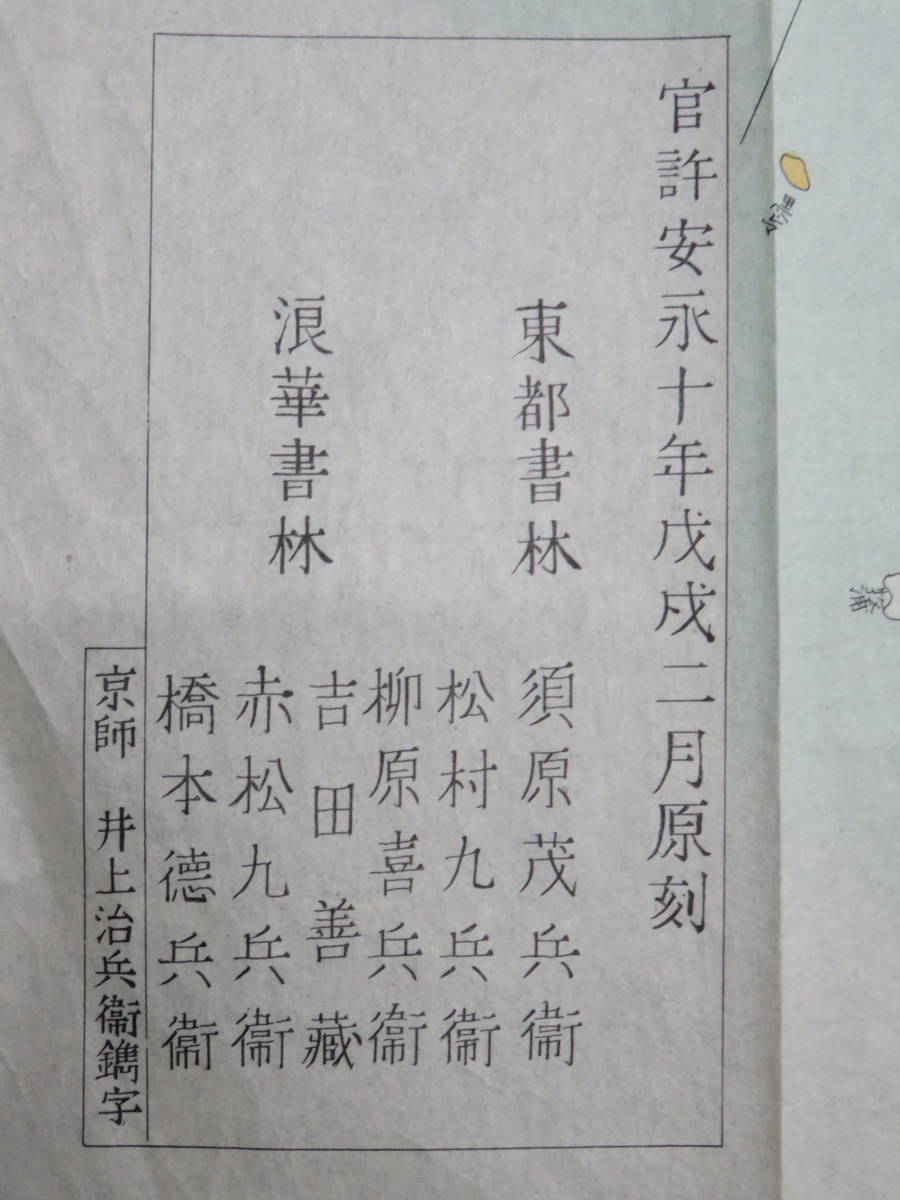 官許安永十年戊戌二月原刻
東都書林
須原茂兵衛
浪華書林
松村九兵衛
柳原喜兵衛
吉田善藏
赤松九兵衛
橋本德兵衛
京師 井上治兵衞鐫字